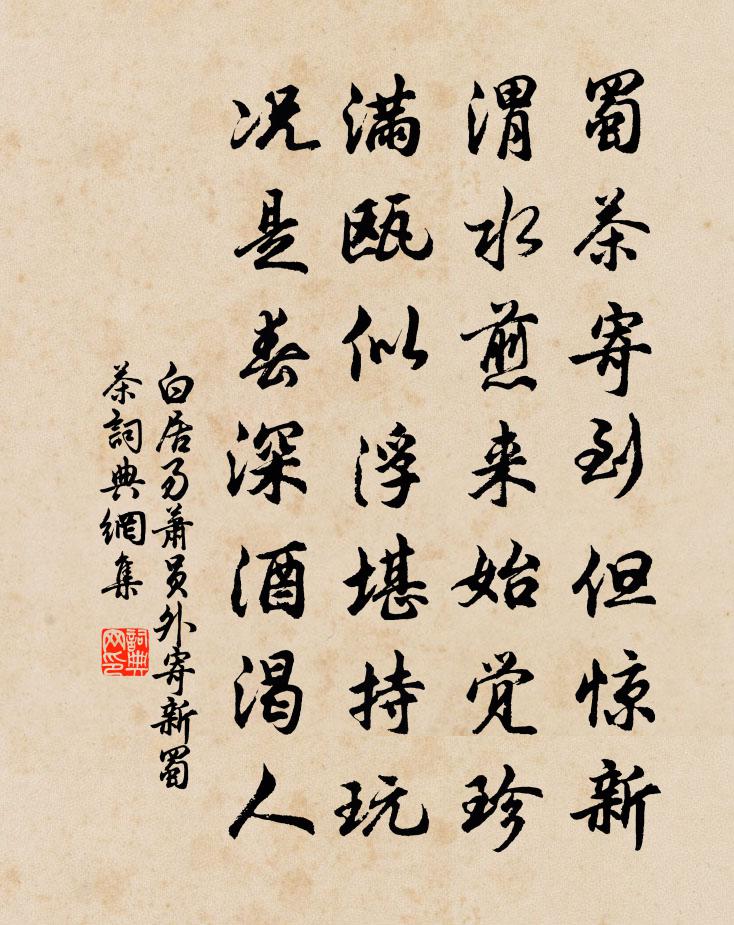 蜀茶寄到但惊新
渭水煎来始觉珍
满瓯似浮堪持玩
况是春深酒渴人
白居易萧员外寄新蜀
茶詞典網集
詞典
网印